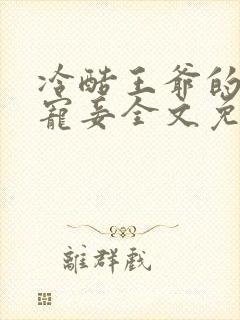 冷酷王爷的
宠妾全文免
离群戏